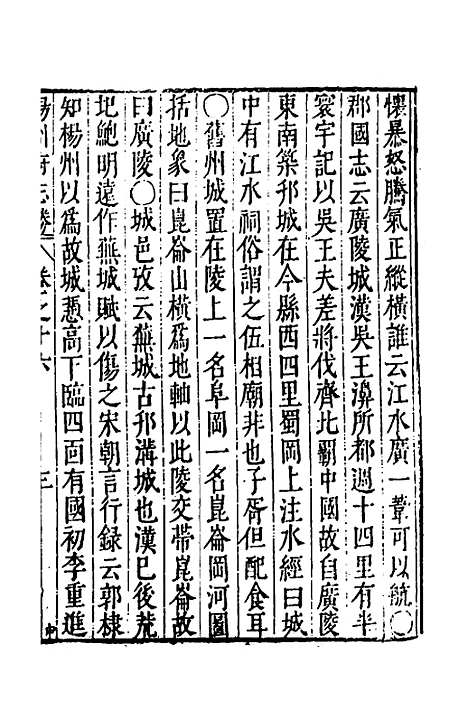 懷暴怒騰氣正縱橫誰云江水廣一葦可以航〇
郡國志云廣陵城漢吳王濞所都週十四里有半
寰宇記以吳王夫差將伐齊北覇中國故自廣陵
東南築邗城在今縣西四里蜀岡上注水經曰城
中有江水祠俗謂之伍相廟非也子胥但配食耳
〇舊州城置在陵上一名阜岡一名崑崙岡河圖
括地象曰崑崙山橫爲地軸以此陵交帶崑崙故
曰廣陵〇城邑攷云蕪城古邗溝城也漢已後荒
圯鮑明遠作蕪城賦以傷之宋朝言行録云郭棣
知楊州以爲故城憑高下臨四面有國初李重進
揚州府志 卷之十六 三